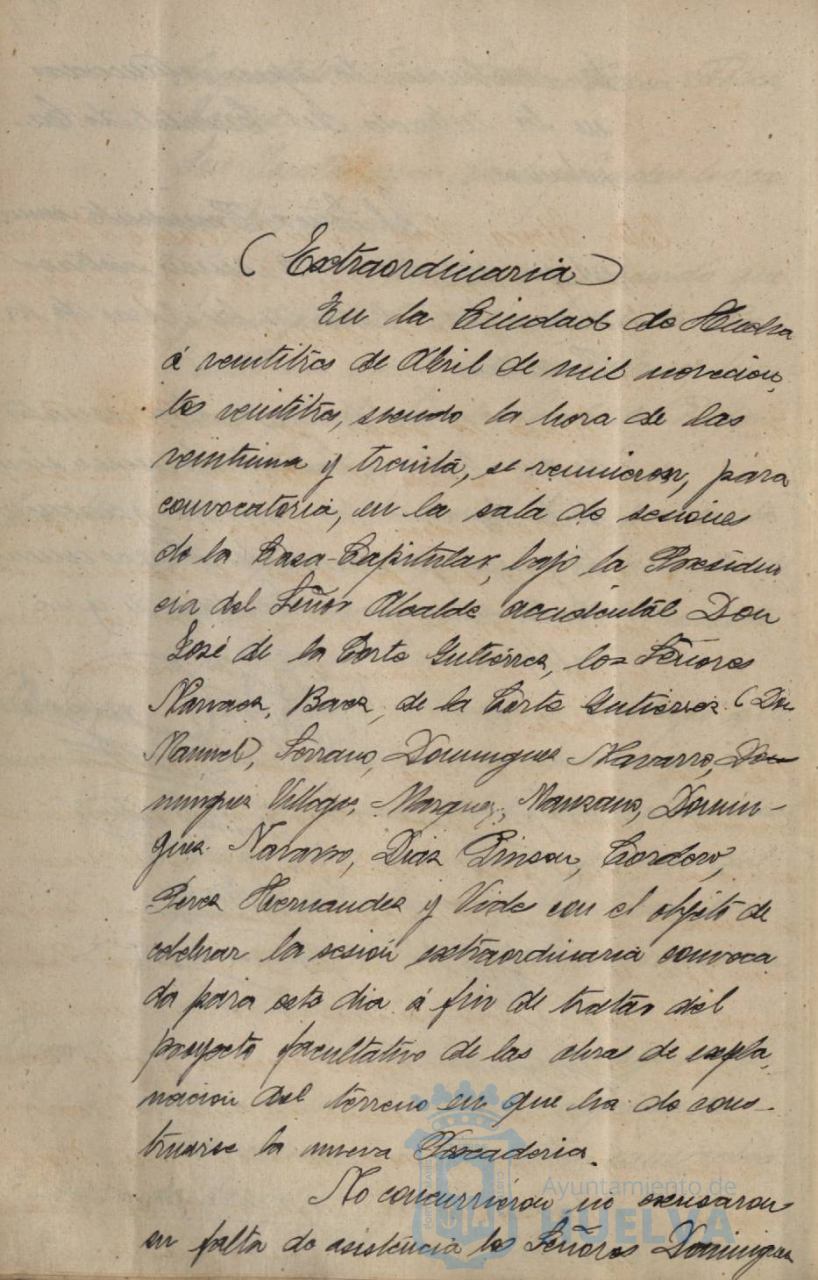 (Extraordinaria)
En la Ciudad de Huelva
á veintitrés de Abril de mil novecien,
tos veintitrés, siendo la hora de las
veintiuna y treinta, se reunieron, para
convocatoria, en la sala de sesiones
de la Casa-Capitular, bajo la Presiden
cia del Señor Alcalde accidental Don
José de la Corte Gutiérrez, los Señores
Narvaez, Baez, de la Corte Gutiérrez (Don
Manuel), Serrano, Dominguez Navarro, Do
minguez Villegas, Marquez, Manzano, Domin-
guez Navarro, Diaz Pinzon, Cordero,
Perez Hernandez y Vides con el objeto de
celebrar la sesión extraordinaria convoca
da para este dia á fin de tratar del
proyecto facultativo de las obras de expla,
nación del terreno en que ha de cons-
truirse la nueva Pescaderia.
No concurrieron ni excusaron
su falta de asistencia los Señores Dominguez
Ayuntamiento de
HUELVA